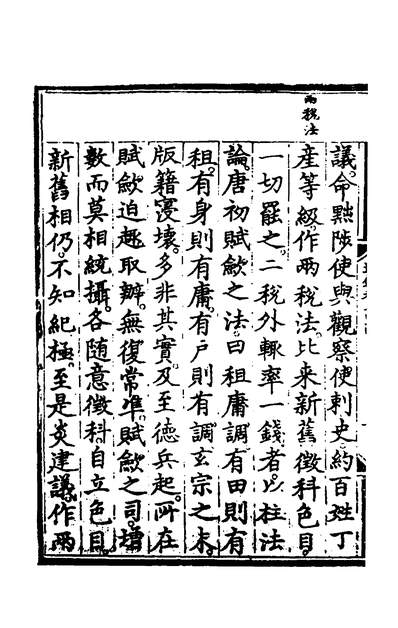 兩稅法
議。命黜陟使與觀察使刺史約百姓丁
產等級。作兩稅法。比来新舊徵科色目。
一切罷之。二稅外輒率一錢者。以枉法
論。唐初賦斂之法。曰租庸調有田則有
租。有身則有庸。有戶則有調。玄宗之末。
版籍寖壞。多非其實。及至德兵起。所在
賦斂。迫趣取辦。無復常准。賦斂之司。增
數而莫相統攝。各隨意徵科。自立色目。
新舊相仍。不知紀極。至是炎建議。作兩